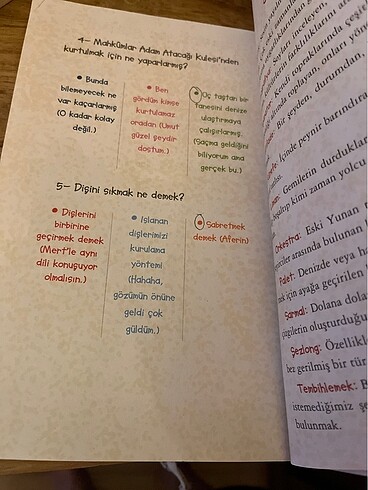 4- Mahkûmlar Adam Atacağı Kulesi'nden
kurtulmak için ne yaparlarmış?
Bunda
bilemeyecek ne
var kaçarlarmış
(O kadar kolay
değil.)
Ben
gördüm kimse
kurtulamaz
oradan (Umut
güzel şeydir
dostum.)
Üç taştan bir
tanesini denize
ulaştırmaya
çalışırlarmış.
(Saçma geldiğini
biliyorum ama
gerçek bu.)
5- Dişini sıkmak ne demek?
Dişlerini
birbirine
geçirmek demek
(Mert'le aynı
dili konuşuyor
olmalısın.)
Islanan
dişlerimizi
kurulama
yöntemi
(Hahaha,
gözümün önüne
geldi çok
güldüm.)
Sabretmek
demek (Aferin)
Sarı inceleyen,
Kendi topraklarında
toplayan, onları
Bir şeyden, durumdan,
İçinde peynir barındıra
Gemilerin durduklar
kimi zaman yolcu
Orkestra: Eski Yunan
arasında bulunan
Palet: Denizde veya ha
için ayağa geçirilen
Sarmal: Dolana dola
çizgilerin oluşturduğu
Şezlong: Özellikl
bez gerilmiş bir tür
Tembihlemek: B
istemediğimiz şe
bulunmak.